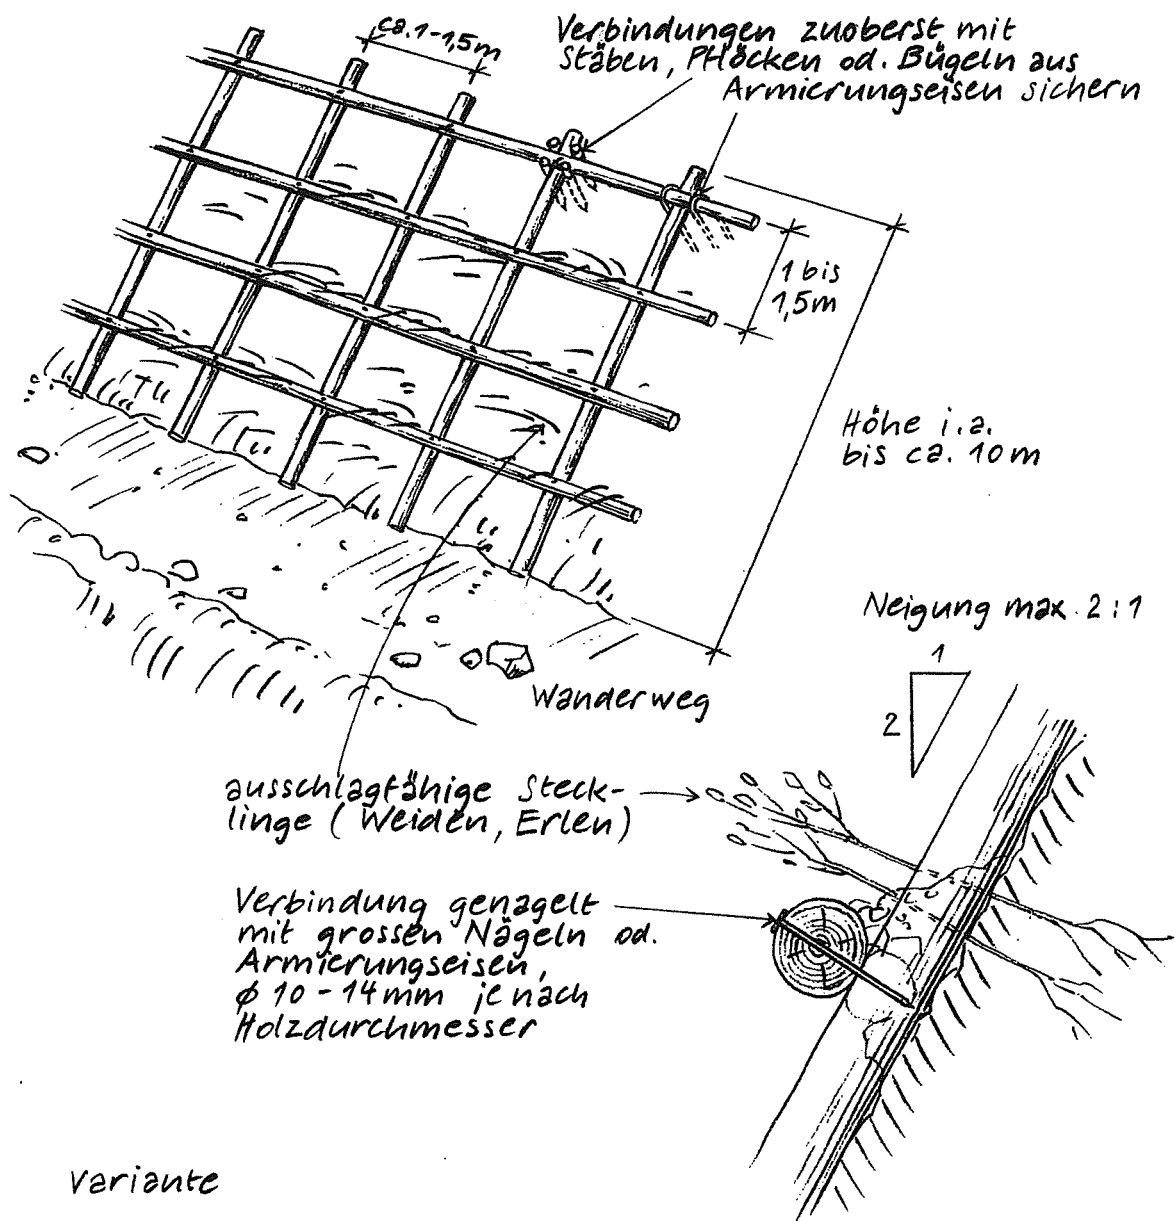 ca. 1-1,5m
Verbindungen zuoberst mit
Stäben, Pflöcken od. Bügeln aus
Armierungseisen sichern
1 bis
1,5m
Höhe i.a.
bis ca. 10m
Neigung max. 2:1
1
2
Wanderweg
ausschlagfähige Steck-
linge (Weiden, Erlen)
Verbindung genagelt
mit grossen Nägeln od.
Armierungseisen,
ϕ 10-14mm je nach
Holzdurchmesser
Variante